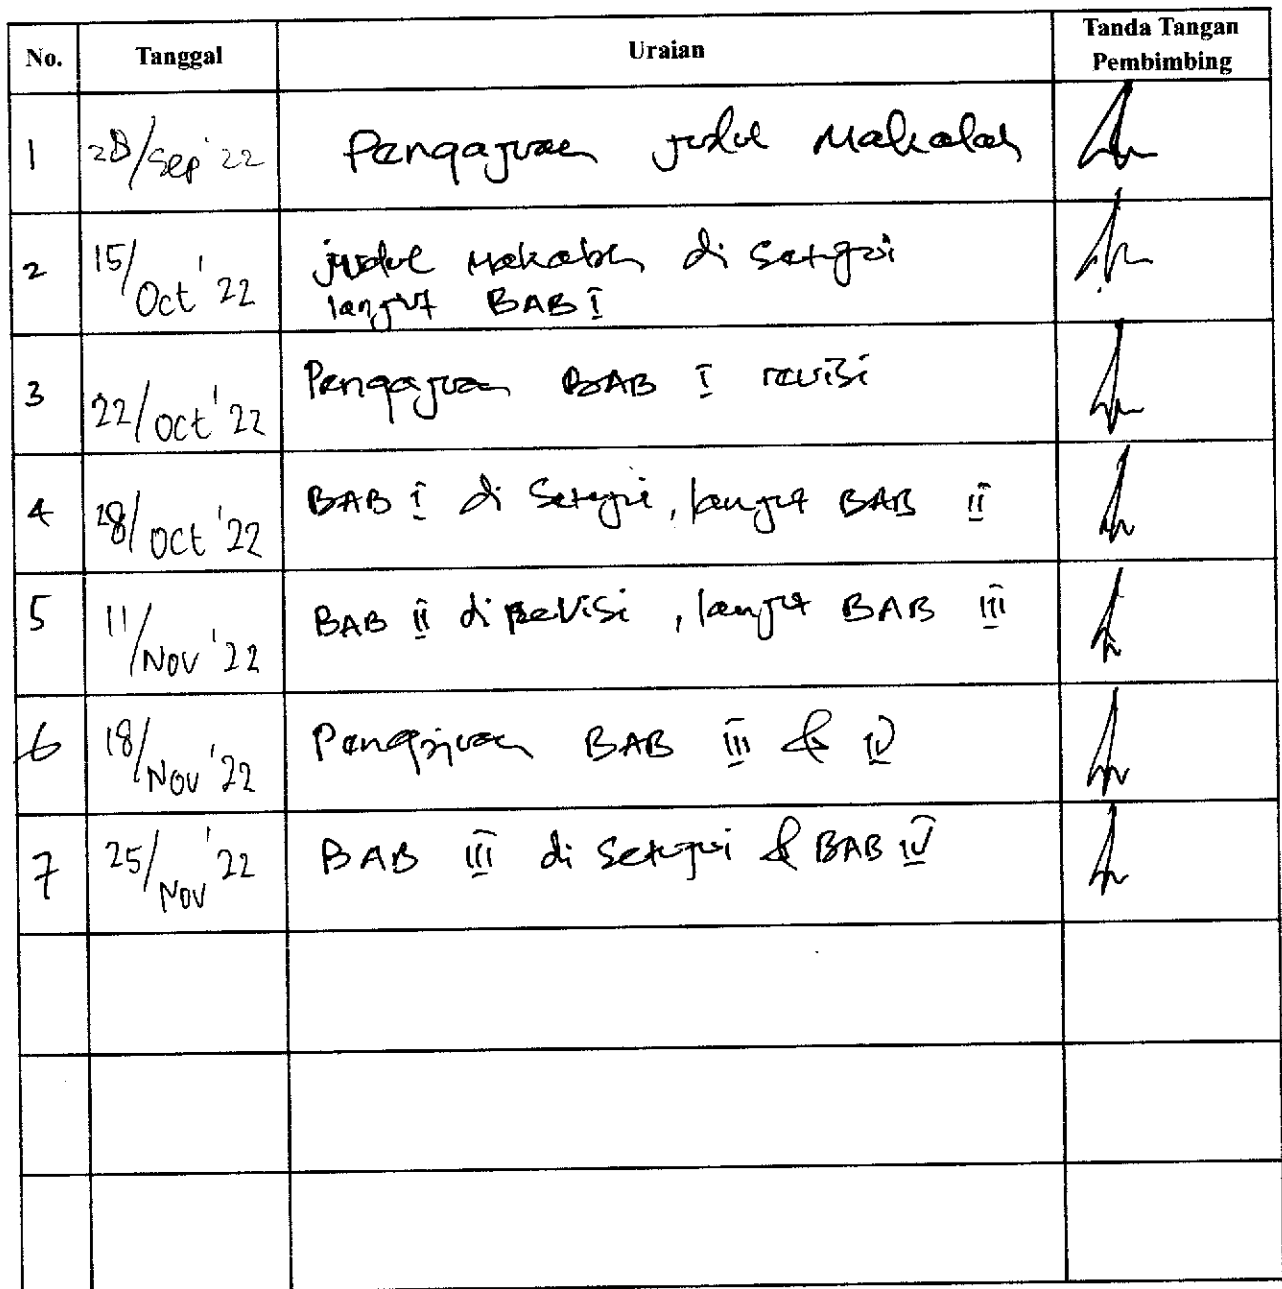 No. Tanggal Uraian Tanda Tangan Pembimbing
1 28/Sep '22 Pengajuan judul Makalah
2 15/Oct '22 judul Makalah di Setujui
lanjut BAB I
3 22/Oct '22 Pengajuan BAB I revisi
4 28/Oct '22 BAB I di Setujui, lanjut BAB II
5 11/Nov '22 BAB II di Revisi, lanjut BAB III
6 18/Nov '22 Pengajuan BAB III & IV
7 25/Nov '22 BAB III di Setujui & BAB IV